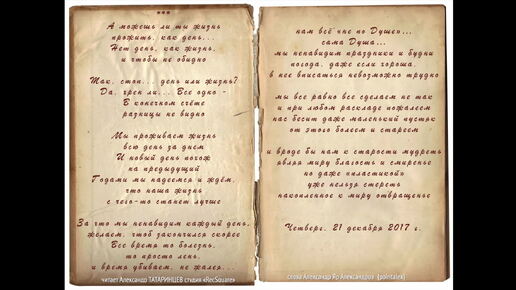 ***
А можешь ли ты жизнь
прожить, как день...
Нет день, как жизнь,
и чтобы не обидно
Так, стоп... день или жизнь?
Да, хрен ли... Все одно -
В конечном счёте
разницы не видно
Мы проживаем жизнь
всю день за днем
И новый день похож
на предыдущий
Годами мы надеемся и ждём,
что наша жизнь
с чего-то станет лучше
За что мы ненавидим каждый день,
желаем, чтоб закончился скорее
Все время то болезнь,
то просто лень,
и время убиваем, не жалея...
читает Александр ТАТАРИНЦЕВ студия «RecSquare»
нам всё «не по Душе»...
сама Душа...
мы ненавидим праздники и будни
погода, даже если хороша,
в нее вписаться невозможно трудно
мы все равно все сделаем не так
и при любом раскладе пожалеем
нас бесит даже маленький пустяк
от этого болеем и стареем
и вроде бы нам к старости мудреть
являя миру благость и смиренье
но даже «пластикой»
уже нельзя стереть
накопленное к миру отвращенье
Четверг, 21 декабря 2017 г.
слова Александр Яр Александров (pointalex)